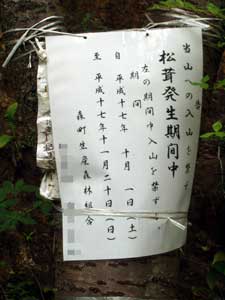 当山への入山を禁ず
松茸発生期間中
左の期間中入山を禁ず
期間
自 平成十七年 十月 一日(土)
至 平成十七年十一月二十日(日)
森町生産森林組合